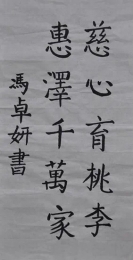 慈心育桃李
惠澤千萬家
馮卓妍書